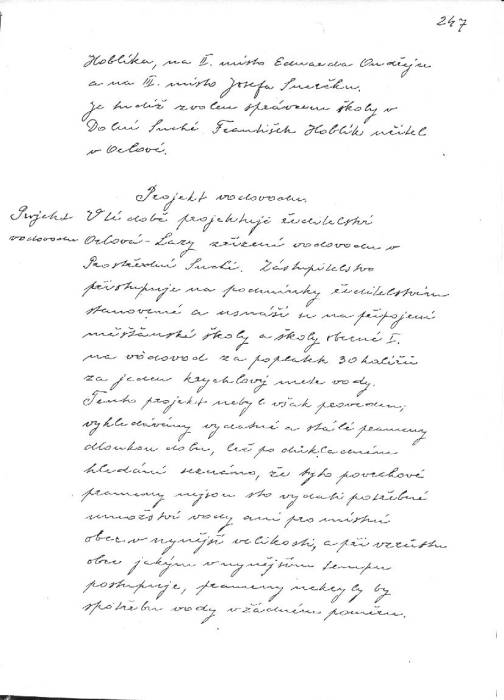 247
Hoblíka, na II. místo Eduarda Ondřeju
a na III. místo Josefa
Je tudíž zvolen správcem školy v
Dolní Suché František Hoblík učitel
v Orlové.
Projekt vodovodu.
Projekt vodovodu
V té době projektuje ředitelství
Orlová-Lazy zřízení vodovodu v
Prostřední Suché. Zastupitelstvo
přistupuje na podmínky ředitelstvím
stanovené a usnáší se na připojení
měšťanské školy a školy obecné I.
na vodovod za poplatek 30 haléřů
za jeden krychlový metr vody.
Tento projekt nebyl však proveden,
vyhledávány vydatné a stálé prameny
dlouhou dobu, leč po důkladném
hledání seznáno, že tyto povrchové
prameny nejsou sto vydati potřebné
množství vody ani pro místní
obec v nynější velikosti, a při vzrůstu
obce jakým v nynějším tempu
postupuje, prameny nekryly by
spotřebu vody v žádném poměru.